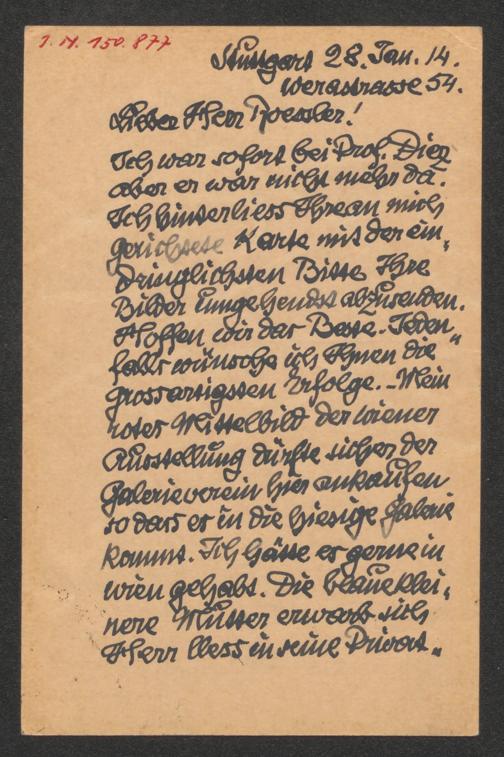 I. N. 150.877
Stuttgart 28. Jan. 14.
Werastrasse 54.
Lieber Herr Roessler!
Ich war sofort bei Prof. Diez
aber er war nicht mehr da.
Ich hinterliess Ihre an mich
gerichtete Karte mit der ein„
dringlichsten Bitte Ihre
Bilder umgehendst abzusenden.
Hoffen wir das Beste. Jeden„
falls wünsche ich Ihnen die
grossartigsten Erfolge. – Mein
rotes Mittelbild der wiener
Ausstellung dürfte sicher der
Galerieverein hier ankaufen
so dass es in die hiesige Galerie
kommt. Ich hätte es gerne in
wien gehabt. Die blaue klei„
nere Mutter erwarb sich
Herr in seine Privat„